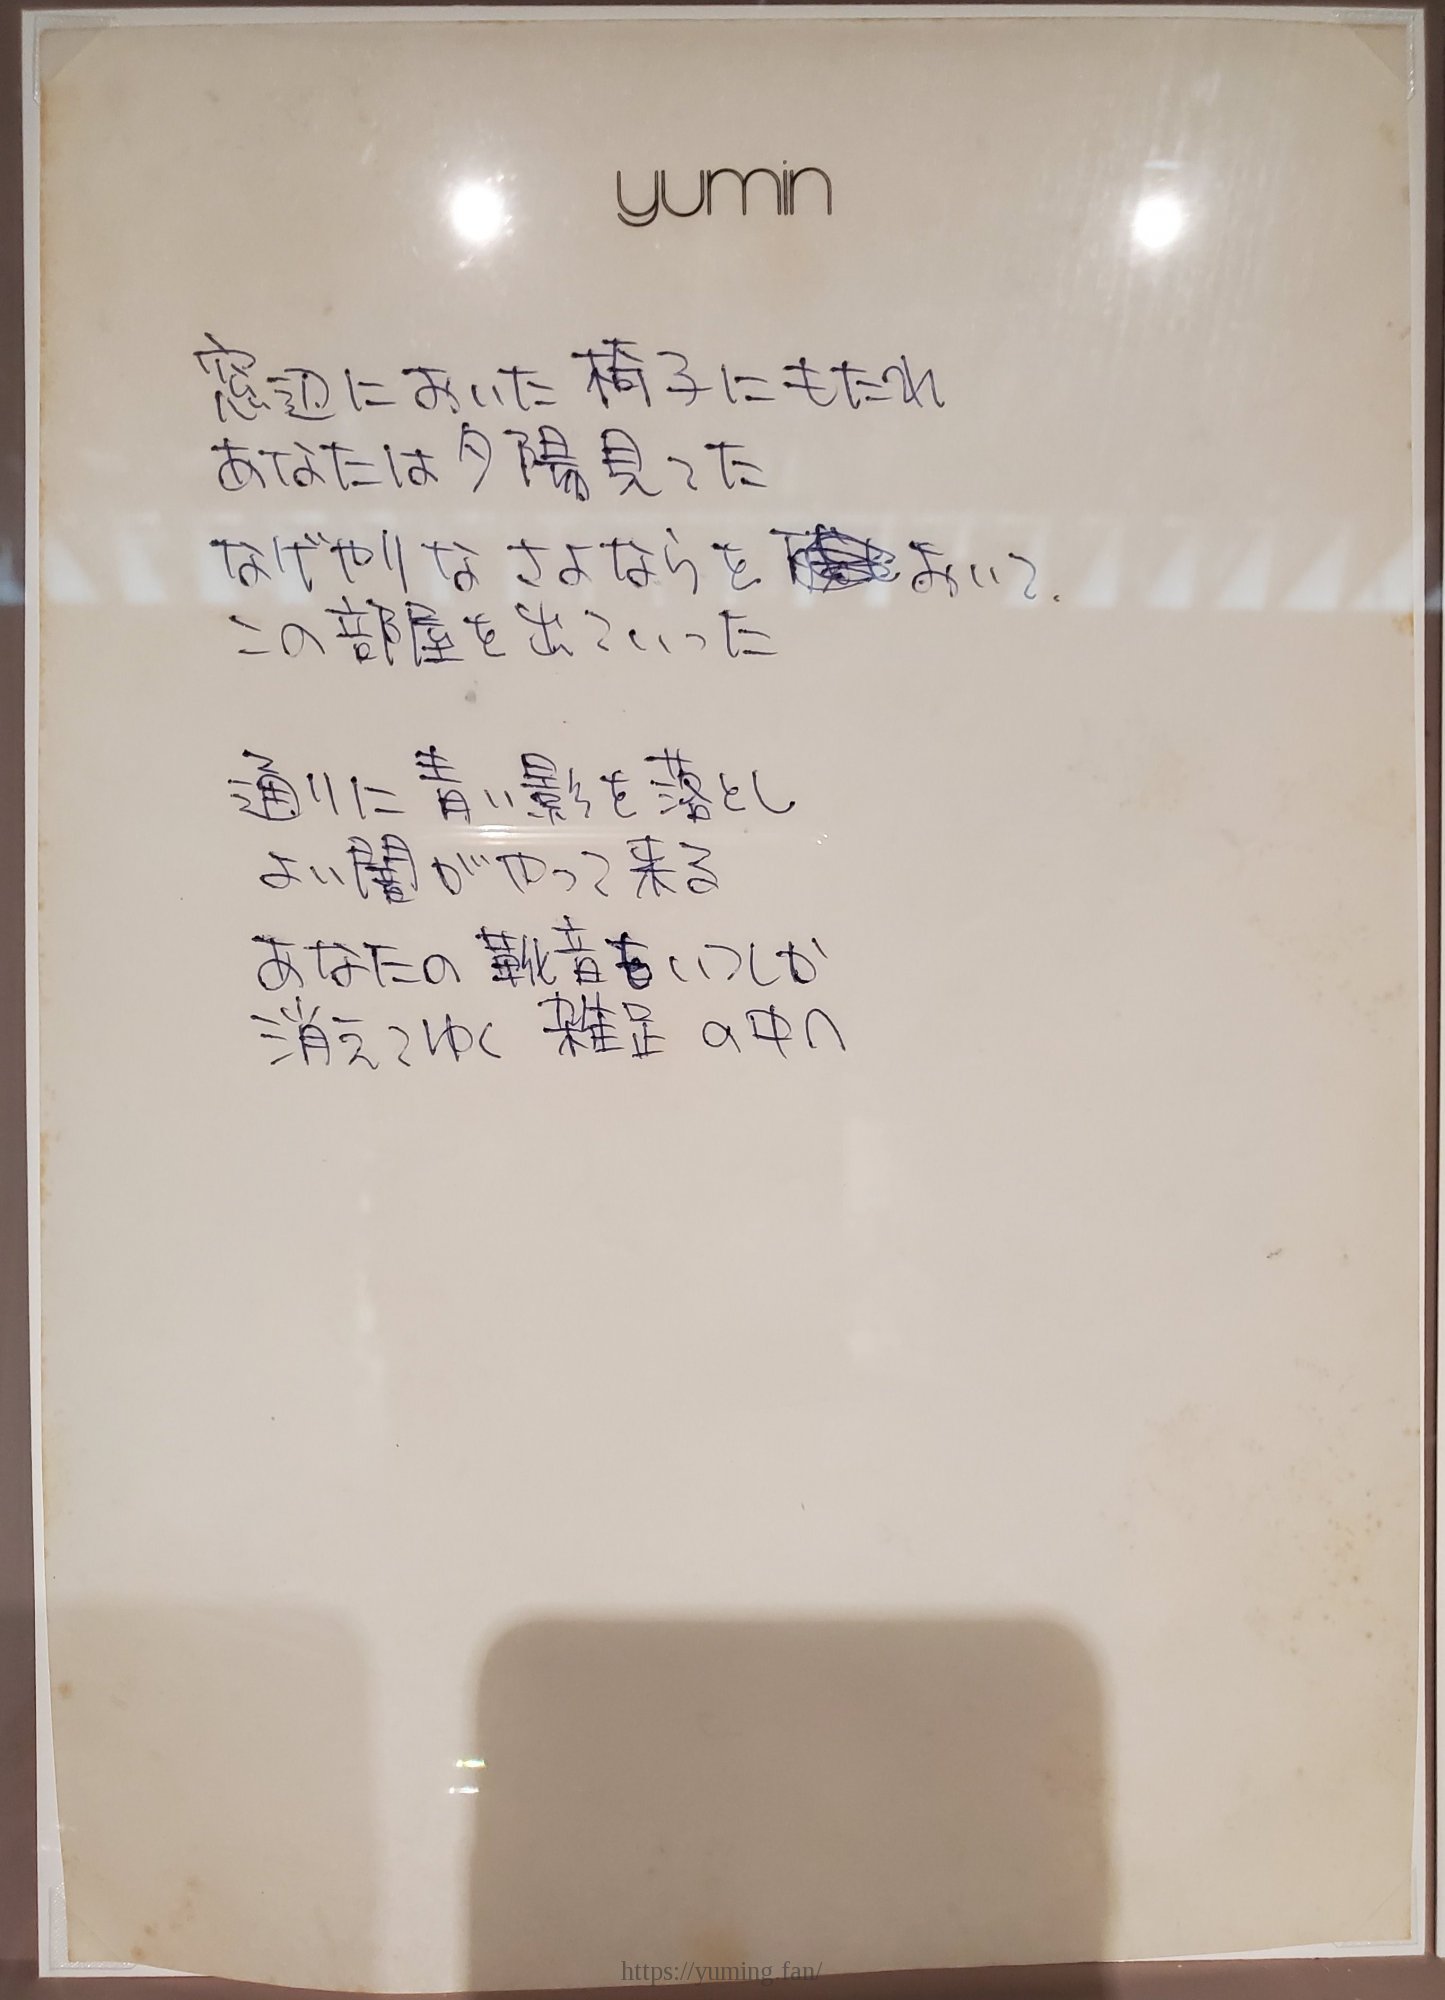 yumin
窓辺においた椅子にもたれ
あなたは夕陽見てた
なげやりなさよならを おいて.
この部屋を出ていった
通りに青い影を落とし
よい闇がやって来る
あなたの靴音もいつしか
消えてゆく 雑足の中へ
https://yuming.fan/